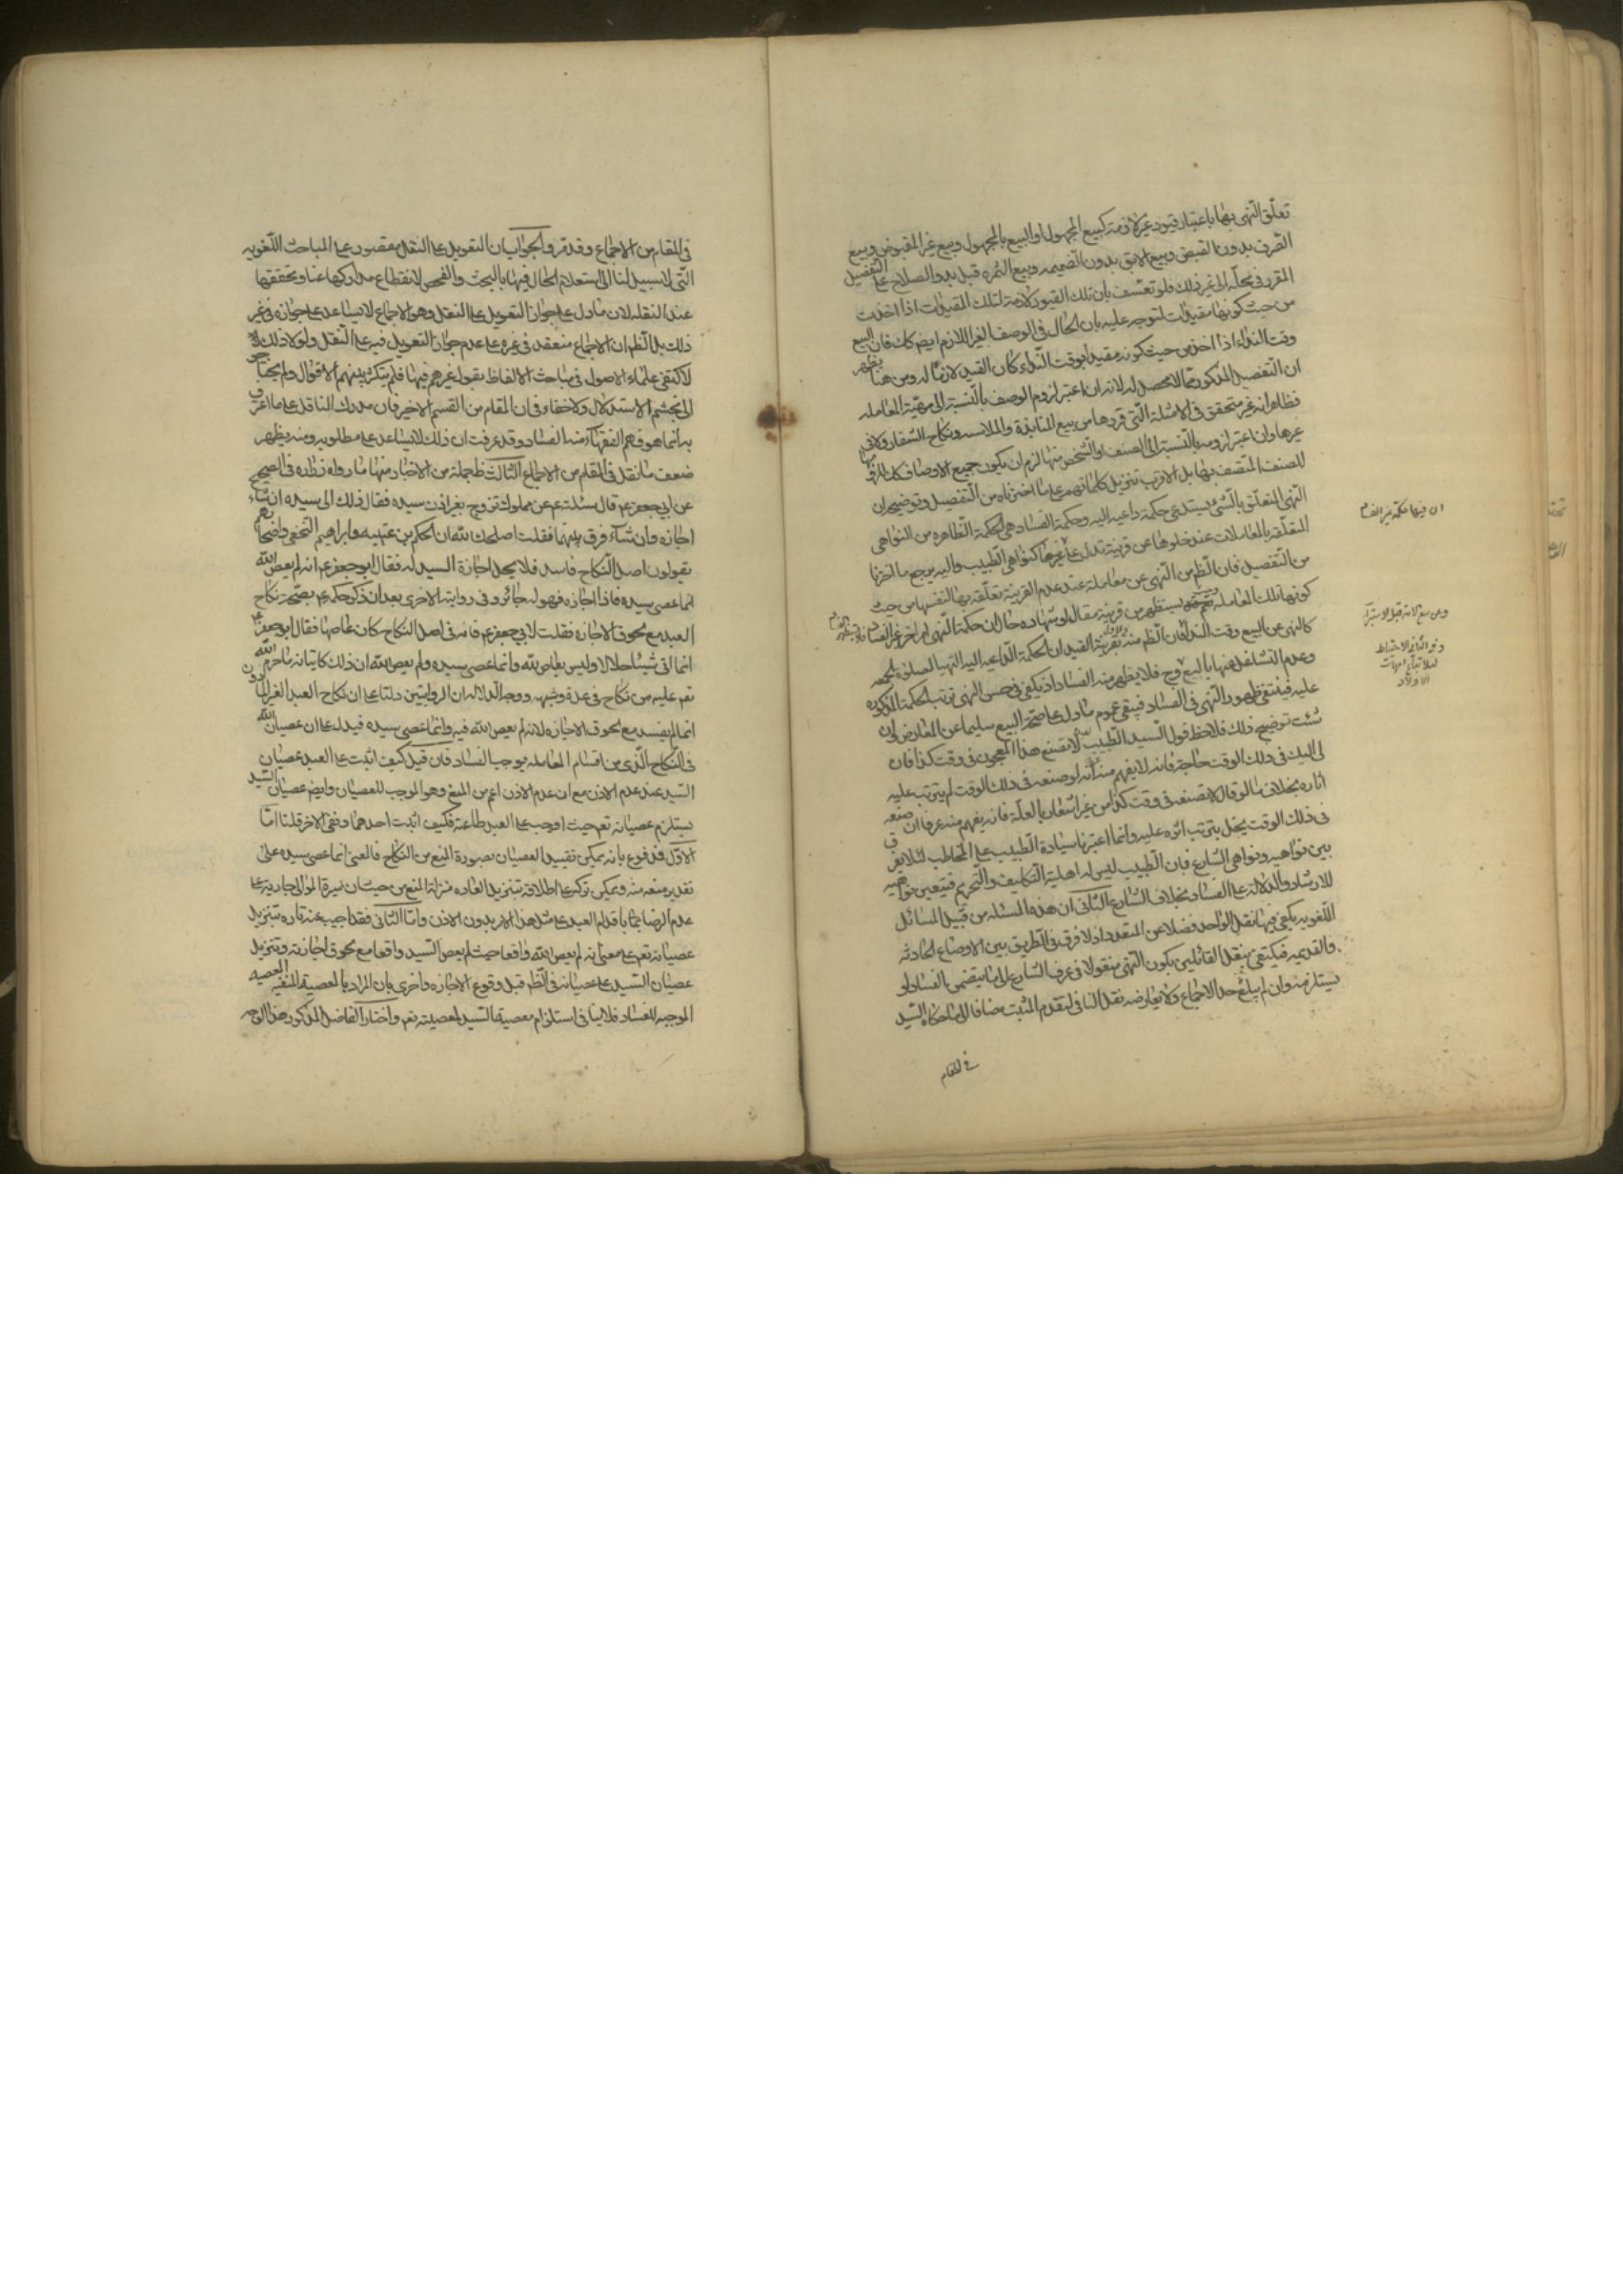 تعلّق النهى بها باعتبار قيود غير لازمة كبيع المجهول او البيع بالمجهول وبيع غير المقبوض وبيع
الصرف بدون القبض وبيع الابق بدون الضميمه وبيع الثمره قبل بدو الصلاح على التفصيل
المقرر فى محلّه الى غير ذلك فلو تعسّف بان تلك القيود لازمة لتلك المقيدات اذا اخذت
من حيث كونها مقيدات لتوجه عليه بان الحال فى الوصف الغير اللازم ايضا كك فان البيع
وقت النداء اذا اخذ من حيث كونه مقيدا بوقت النداء كان القيد لازمًا له ومن هنا يظهر
ان التفصيل المذكور مما لا محصل له لانه ان اعتبر لزوم الوصف بالنسبة الى مهيّة المعامله
فظاهر انه غير متحقق فى الامثلة التى قررها من بيع المنابذة والملامسه ونكاح الشغار ولا فى
غيرها وان اعتبر لزومه بالنسبة الى الصنف او الشخص منها لزم ان يكون جميع الاوصاف كك
للصنف المتصف بها بل الاقرب تنزيل كلماتهم على ما اخترناه من التفصيل وتوضيحه ان
النهى المتعلّق بالشئ يستدعى حكمة داعيه اليه وحكمة الفساد هى الحكمة الظاهره من النواهى
المتعلّقه بالمعاملات عند خلوها عن قرينة تدل على غيرها كنواهى الطبيب واليه يرجع ما اخترنا
من التفصيل فان الظم من النهى عن معاملة عند عدم القرينة تعلّقه بها لنفسها من حيث
كونها تلك المعامله نعم قد يستظهر من قرينة مقال او شهادة حال ان حكمة النهى امر اخر غير الفساد
كالنهى عن البيع وقت النداء فان الظم منه بقرينة القيد ان الحكمة الداعيه اليه التهيأ لصلوة الجمعه
وعدم التشاغل عنها بالبيع وح فلا يظهر منه الفساد اذ يكفى فى حسن النهى ترتب الحكمة المذكوره
عليه فينتفى ظهور النهى فى الفساد فيبقى عموم ما دل على صحة البيع سليما عن المعارض وان
شئت توضيح ذلك فلاحظ قول السيد الطبيب لا تصنع هذا المعجون فى وقت كذا فان
لى اليك فى ذلك الوقت حاجة فانه لا يفهم منه انه لو صنعه فى ذلك الوقت لم يترتب عليه
اثاره بخلاف ما لو قال لا تصنعه فى وقت كذا من غير اشعار بالعلّة فانه يفهم منه عرفا ان صنعه
فى ذلك الوقت يخل بترتب اثره عليه وانما اعتبرنا سيادة الطبيب على المخاطب لئلا يفرق
بين نواهيه ونواهى الشارع فان الطبيب ليس له اهلية التكليف والتحريم فيتعين نواهيه
للارشاد والدلالة على الفساد بخلاف الشارع الثانى ان هذه المسئله من قبيل المسائل
اللغويه يكفى فيها نقل الواحد فضلا عن المتعدد اذ لا فرق فى الطريق بين الاوضاع الحادثه
والقديمه فيكتفى بنقل القائلين بكون النهى منقولا فى عرف الشارع الى ما يتضمن الفساد او
يستلزمه وان لم يبلغ حد الاجماع ولا يعارضه نقل النافى لتقدم المثبت مضافا الى ما حكاه السّيد
فى المقام
ان فيها حكمة غير الفساد
فى المقام من الاجماع وقد مر والجواب ان التعويل على النقل مقصور على المباحث اللّغويه
التى لا سبيل لنا الى استعلام الحال فيها بالبحث والفحص لانقطاع مداركها عنا وتحققها
عند النقله لان ما دل على جواز التعويل على النقل وهو الاجماع لا يساعد على جوازه فى غير
ذلك بل الظم ان الاجماع منعقد فى غيره على عدم جواز التعويل فيه على النقل ولولا ذلك
لاكتفى علماء الاصول فى مباحث الالفاظ بقول غيرهم فيها فلم يتكثر بينهم الاقوال ولم يحتاجوا
الى تجشم الاستدلال ولا خفاء فى ان المقام من القسم الاخير فان مدرك الناقل على ما اعترف
به انما هو فهم الفقهاء منه الفساد وقد عرفت ان ذلك لا يساعد على مطلوبه ومنه يظهر
ضعف ما نقل فى المقام من الاجماع الثالث جملة من الاخبار منها ما رواه زراره فى الصحيح
عن ابى جعفر ع قال سئلته عن مملوك تزوج بغير اذن سيده فقال ذلك الى سيده ان شاء
اجازه وان شاء فرق بينهما فقلت اصلحك الله ان الحكم بن عتيبه وابراهيم النخعى واصحابهم
يقولون اصل النكاح فاسد فلا يحل اجازة السيد له فقال ابو جعفر ع انه لم يعص الله
انما عصى سيده فاذا اجازه فهو له جائز وفى روايته الاخرى بعد ان ذكر حكمه ع بصحة نكاح
العبد مع لحوق الاجازه فقلت لابى جعفر ع فانه فى اصل النكاح كان عاصيا فقال ابو جعفر ع
انما اتى شيئا حلالا وليس بعاص لله وانما عصى سيده ولم يعص الله ان ذلك كاتيانه ما حرم الله
تعم عليه من نكاح فى عدة وشبهه ووجه الدلالة ان الروايتين دلتا على ان نكاح العبد الغير الماذون
انما لم يفسد مع لحوق الاجازه لانه لم يعص الله فيه وانما عصى سيده فيدل على ان عصيان الله
فى النكاح الذى من اقسام المعامله يوجب الفساد فان قيل كيف اثبت على العبد عصيان
السيد بمجرد عدم الاذن مع ان عدم الاذن اعم من المنع وهو الموجب للعصيان وايضا عصيان السّيد
يستلزم عصيانه تعم حيث اوجب على العبد طاعته فكيف اثبت احدهما ونفى الاخر قلنا امّا
الاوّل فمدفوع بانه يمكن تقييد العصيان بصورة المنع من النكاح فالمعنى انما عصى سيده على
تقدير منعه منه ويمكن تركه على اطلاقه بتنزيل العاده منزلة المنع من حيث ان سيرة الموالى جارية على
عدم الرضا باقدام العبد على مثل هذا الامر بدون الاذن واما الثانى فقد اجيب عنه تارة بتنزيل
عصيانه تعم على معنى انه لم يعص الله واقعا حيث لم يعص السّيد واقعا مع لحوق اجازته وتنزيل
عصيان السّيد على عصيانه فى الظم قبل وقوع الاجازه واخرى بان المراد بالمعصية المنفيه المعصية
الموجبه للفساد فلا ينافى استلزام معصية السّيد لمعصيته تعم واختار الفاضل المذكور هذا الوجه